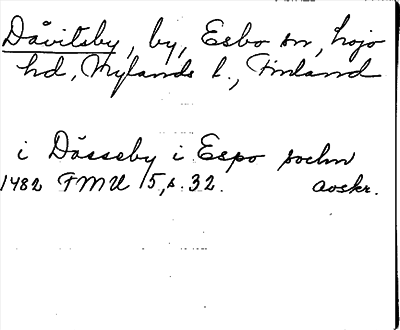 Dåvitsby, by, Esbo sn, Lojo
hd, Nylands l., Finland
i Dåsseby i Espo sochn
1482 FMU 5, s. 32. avskr.